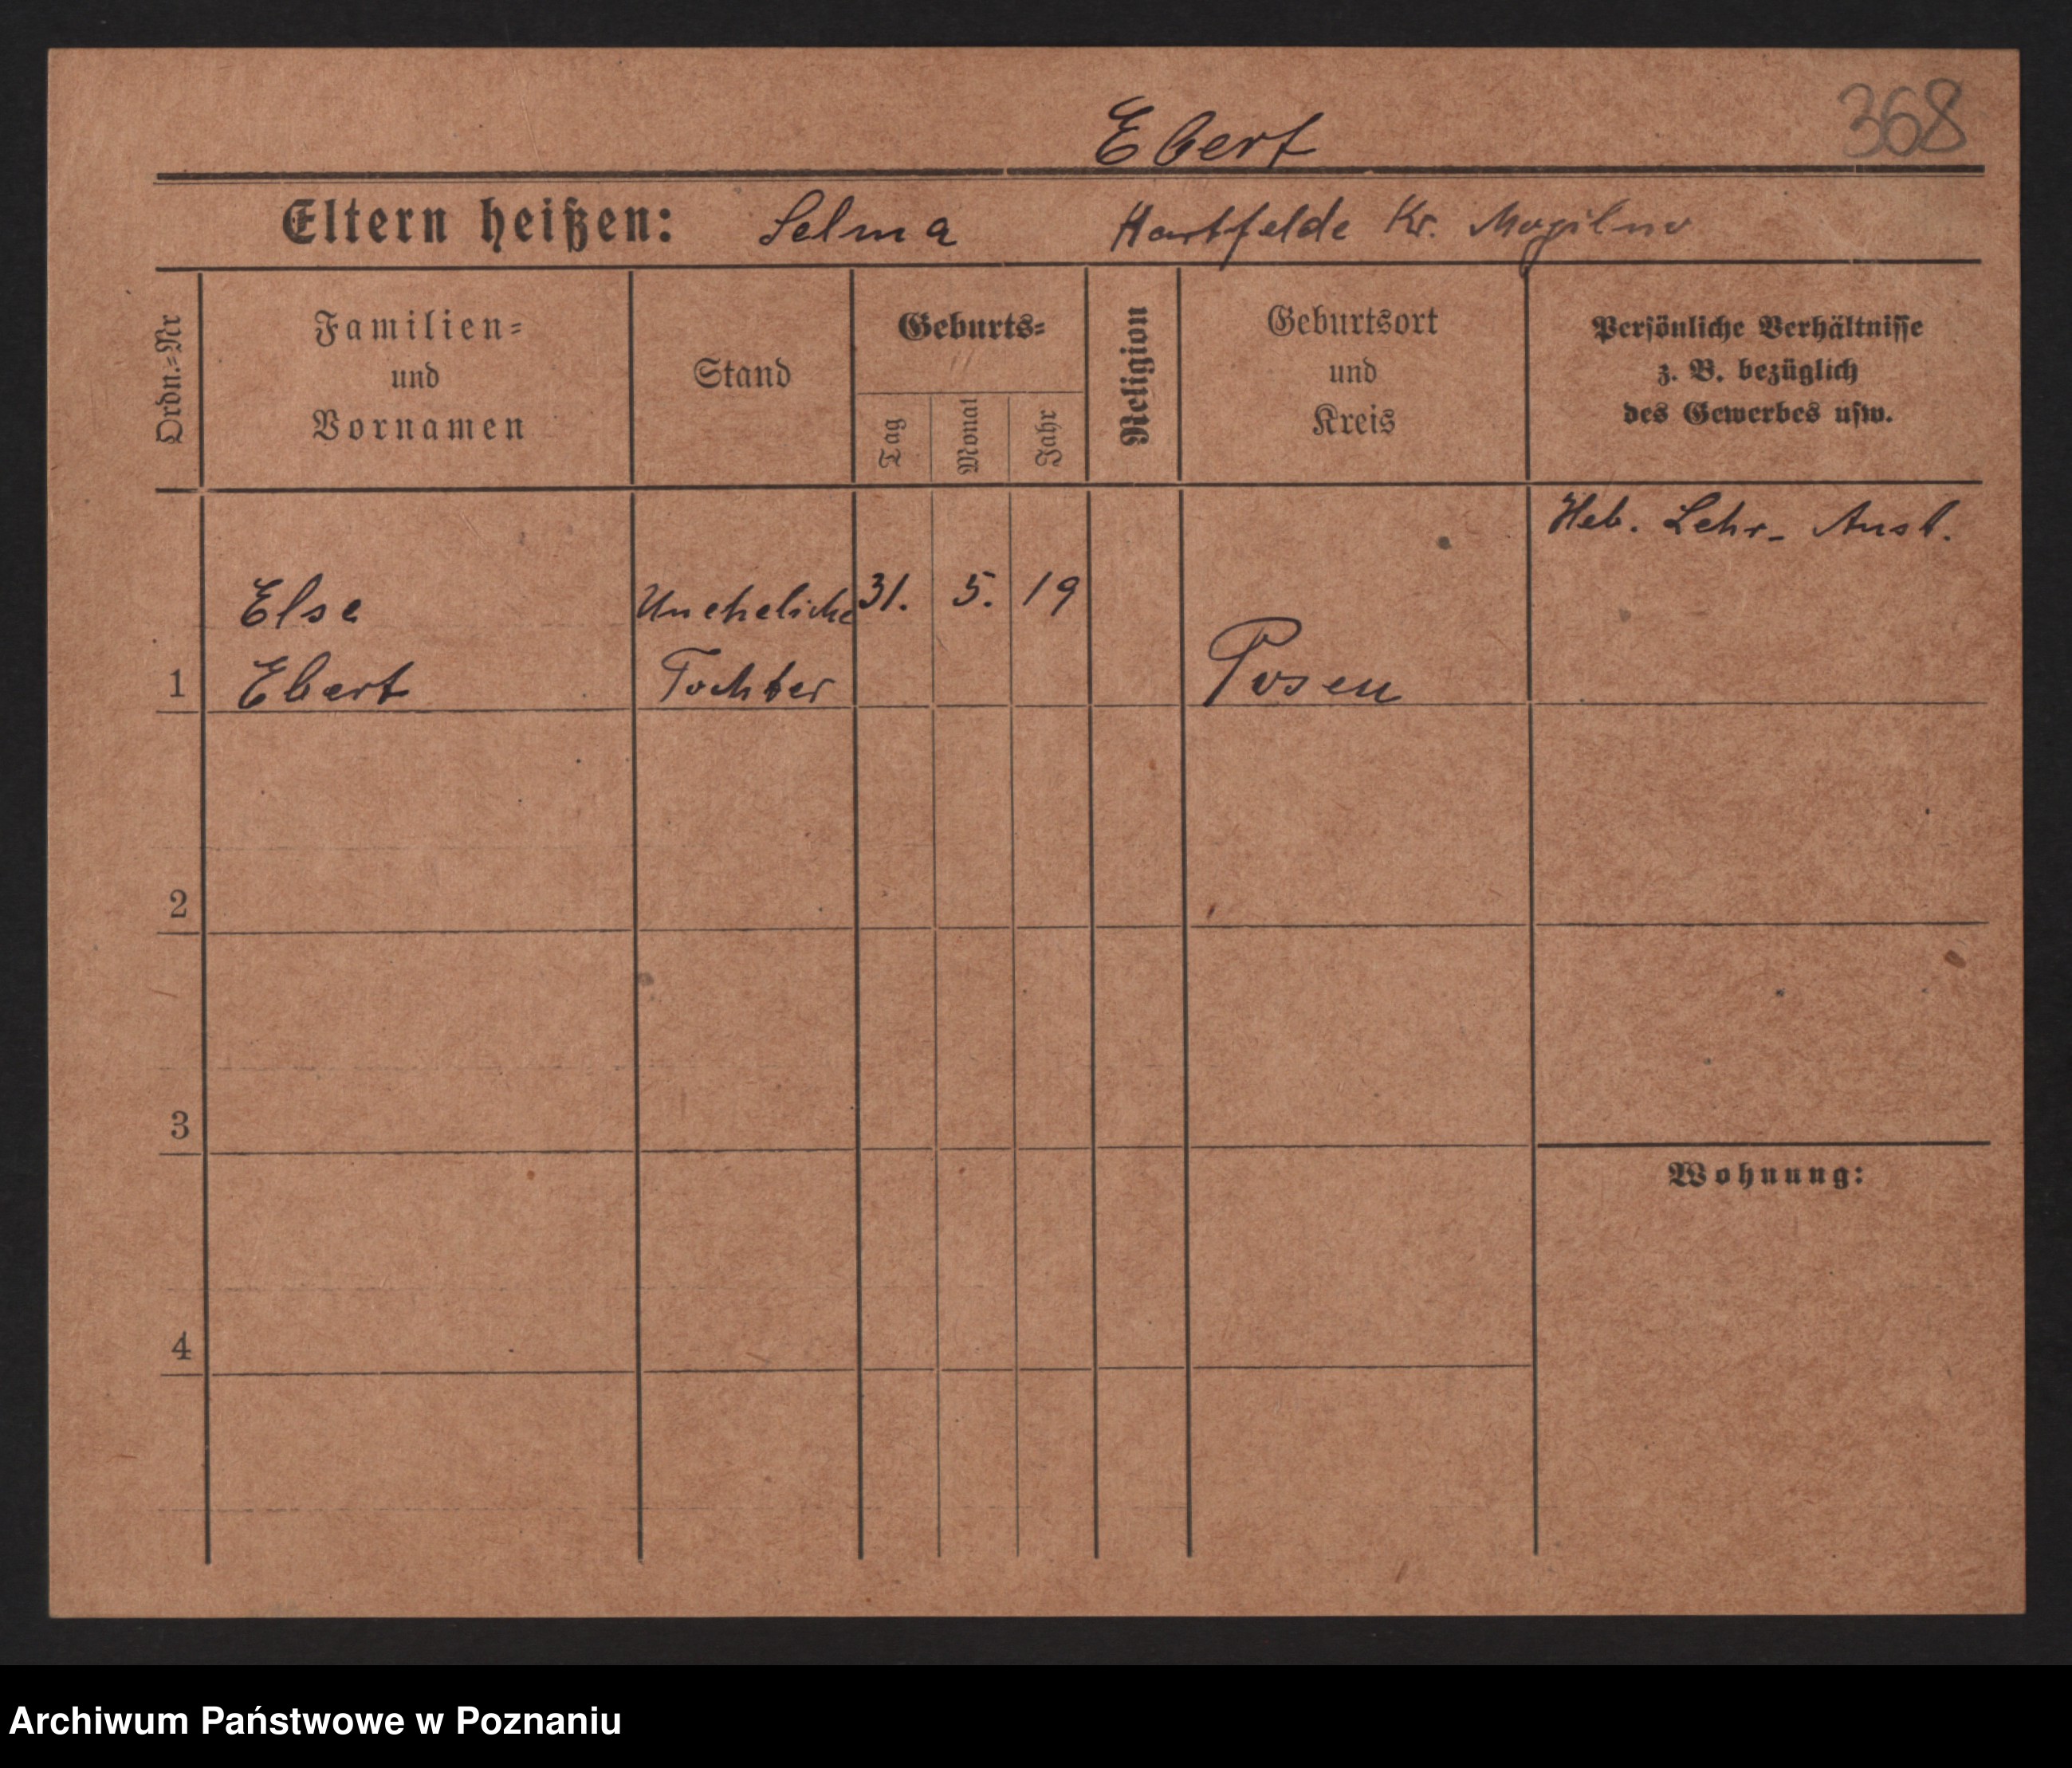 368
Ebert
Eltern heißen: Selma Hartfelde Kr. Mogilno
Ordn.=Nr
Familien=
und
Vornamen
Stand
Geburts=
Tag
Monat
Jahr
Religion
Geburtsort
und
Kreis
Persönliche Verhältnisse
z. B. bezüglich
des Gewerbes usw.
Heb. Lehr- Anst.
Else Uneheliche 31. 5. 19
1 Ebert Tochter Posen
2
3
Wohnung:
4
Archiwum Państwowe w Poznaniu